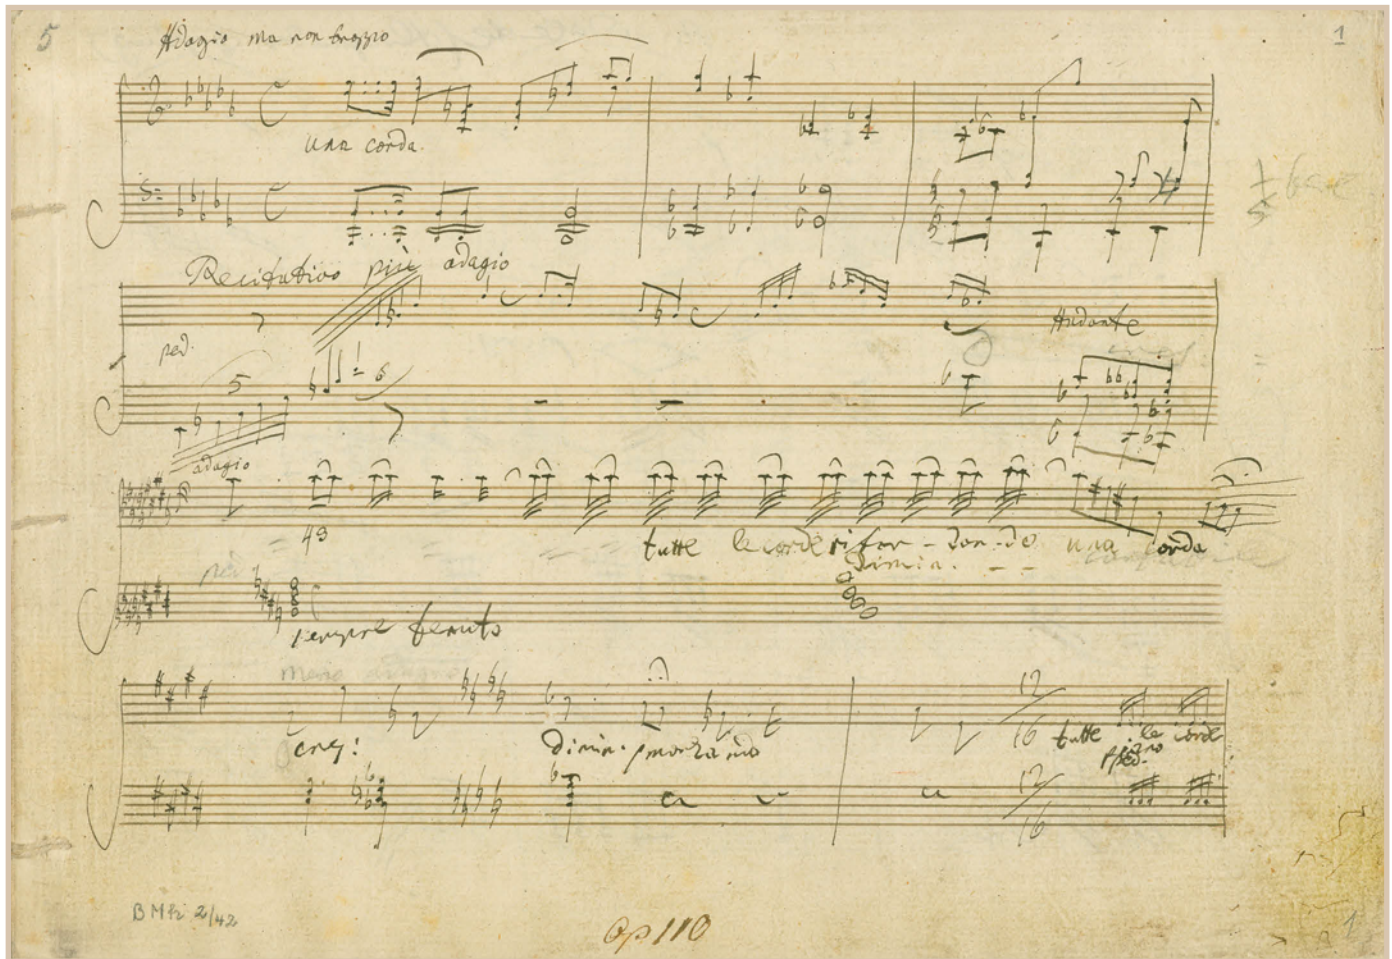 5
1
Adagio ma non troppo
una corda.
Recitativo più adagio
Andante
ped.
5
6
adagio
43
tutte le corde rifor - zan - do una corda
dimin. - -
ped
sempre tenuto
12
16
cresc: dimin. smorzando tutte le corde
12
16
BMh 2/42
Op 110
1